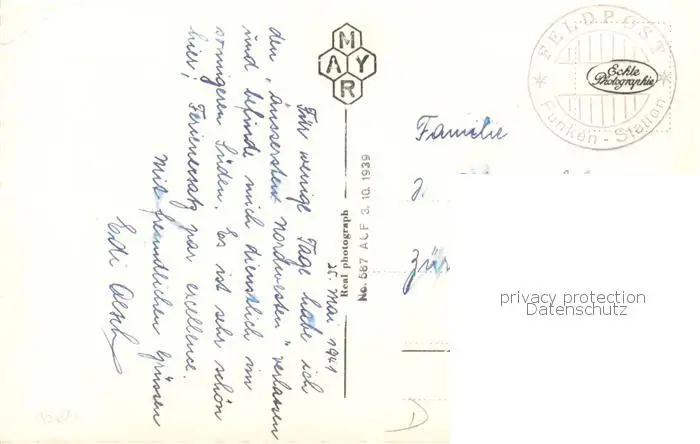 25. Mai 1941
Für wenige Tage habe ich
den "äussersten Nordwesten" verlassen
und befinde mich dienstlich im
sonnigeren Süden. Es ist sehr schön
hier! Ferienersatz par excellence.
Mit freundlichen Grüssen
Edi Oesch
MAYR
Real photograph
No. 587 ACF 3.10.1939
FELDPOST
Funken-Station
Echte
Photographie
Familie
J.
Zür
privacy protection
Datenschutz
D